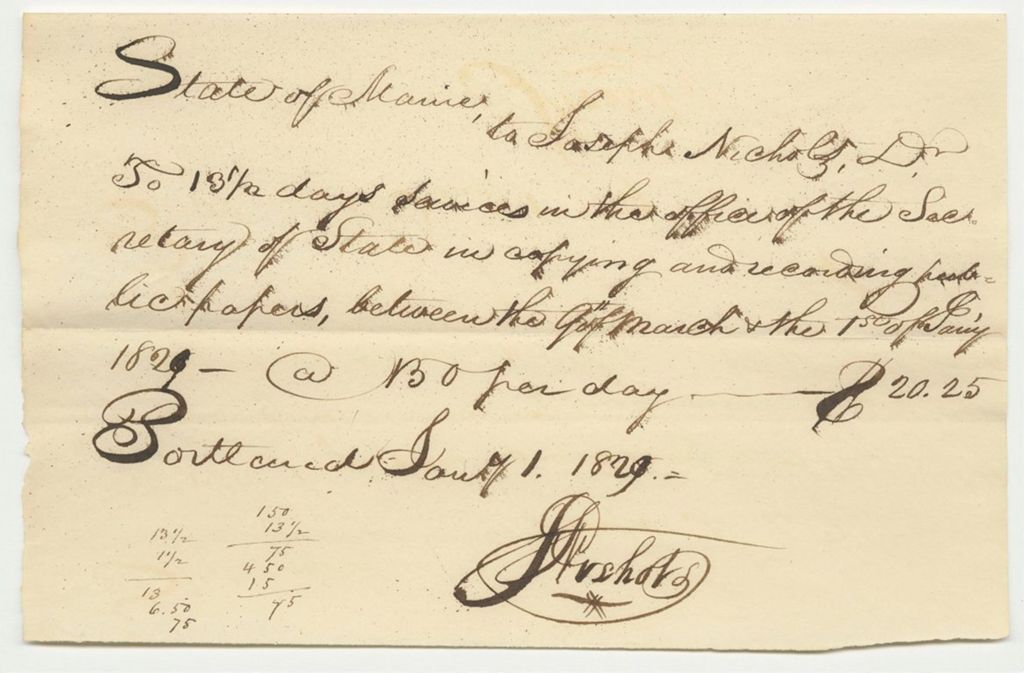 State of Maine,
to Joseph Nichols, Dr
To 13 1/2 days services in the office of the Sec-
retary of State in copying and recording pub-
lic papers, between the 9th of March & the 1st of Jan'y
1829 — @ 150 per day — $ 20.25
Portland Jan'y 1. 1829. =
J Nichols
150
13 1/2
75
4 50
15
75
13 1/2
1 1/2
13
6.50
75